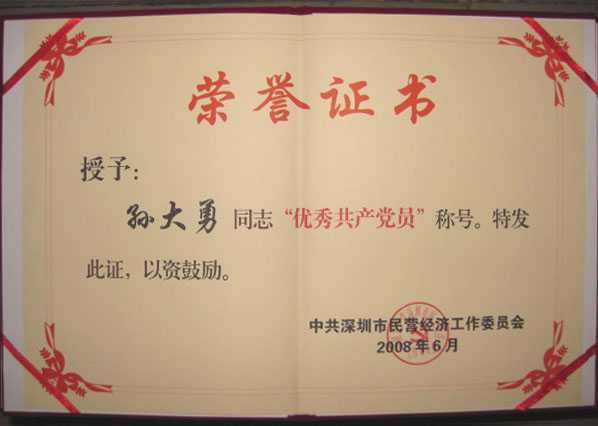 荣誉证书
授予：
孙大勇同志“优秀共产党员”称号。特发
此证，以资鼓励。
中共深圳市民营经济工作委员会
2008年6月